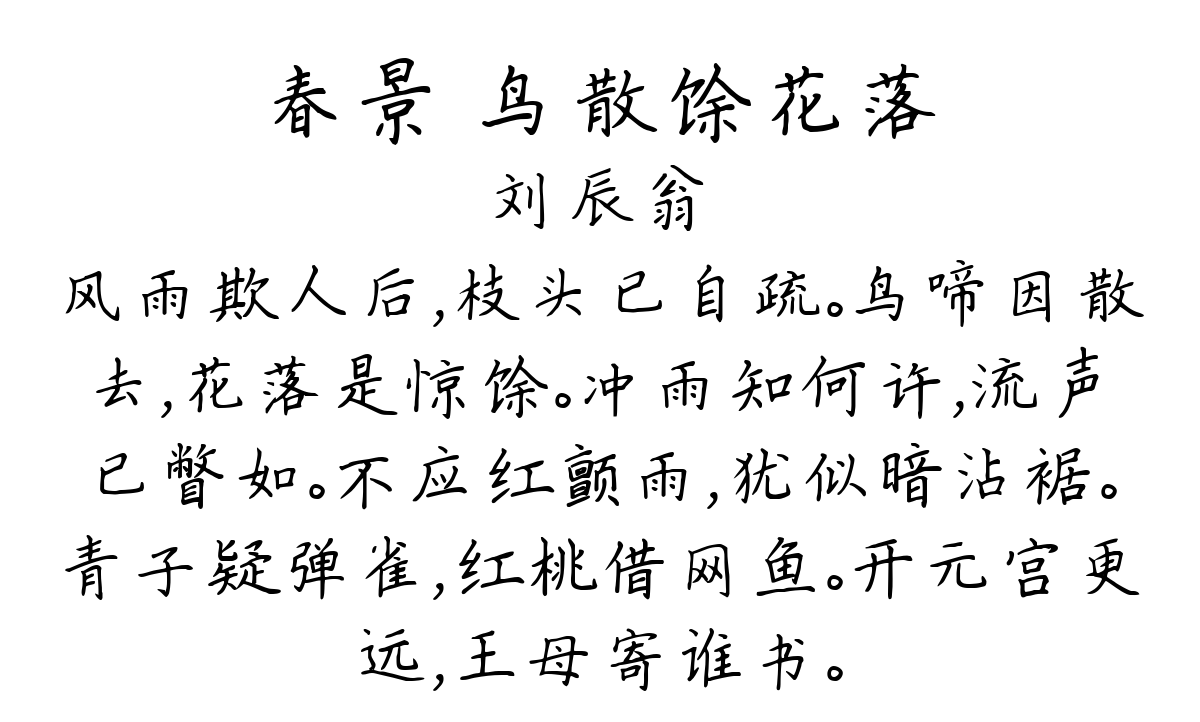 春景 鸟散馀花落
刘辰翁
风雨欺人后,枝头已自疏。鸟啼因散
去,花落是惊馀。冲雨知何许,流声
已瞥如。不应红颤雨,犹似暗沾裾。
青子疑弹雀,红桃借网鱼。开元宫更
远,王母寄谁书。